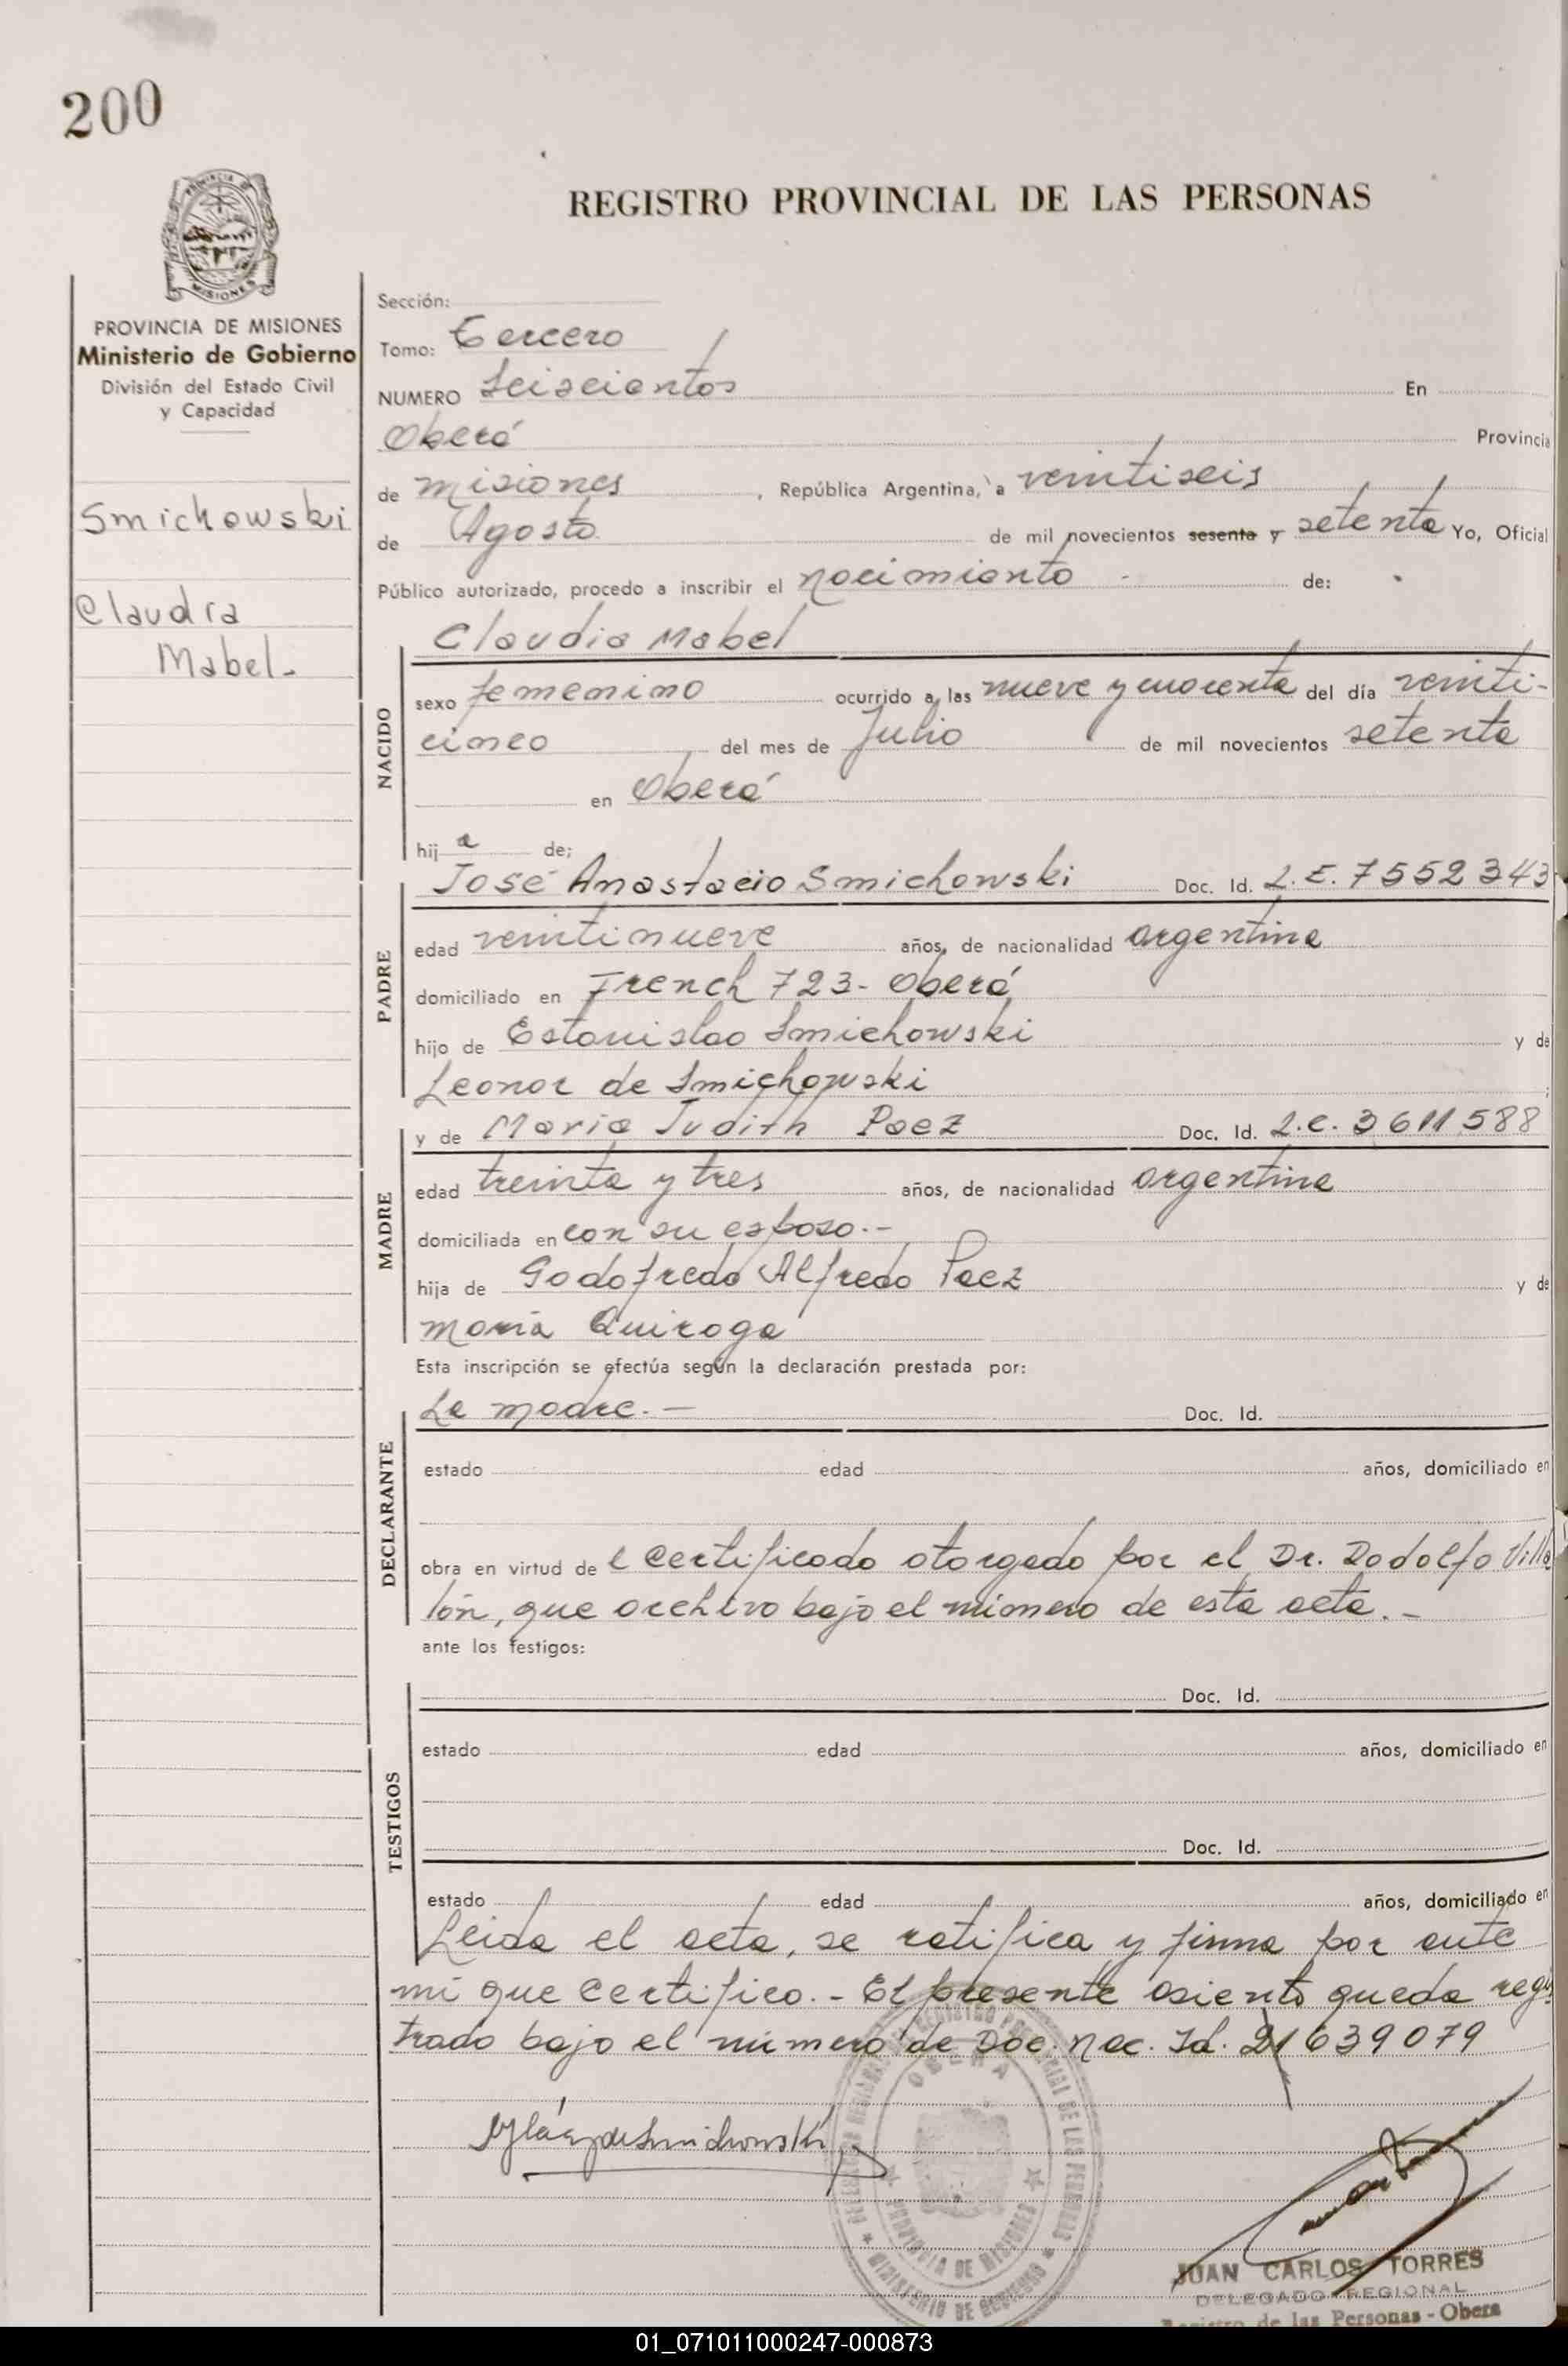 200
REGISTRO PROVINCIAL DE LAS PERSONAS
PROVINCIA DE MISIONES
Ministerio de Gobierno
División del Estado Civil
y Capacidad
Smichowski
Claudia
Mabel.
Sección:
Tomo: Tercero
NUMERO Seiscientos En
Oberá Provincia
de Misiones, República Argentina, a veintiseis
de Agosto de mil novecientos sesenta y setenta Yo, Oficial
Público autorizado, procedo a inscribir el nacimiento - de:
NACIDO
Claudia Mabel
sexo femenino ocurrido a las nueve y cuarenta del día veinti-
cinco del mes de Julio de mil novecientos setenta
en Oberá
hija de;
PADRE
José Anastacio Smichowski Doc. Id. L.E. 7552343
edad veintinueve años, de nacionalidad argentina
domiciliado en French 723- Oberá
hijo de Estanislao Smichowski y de
Leonor de Smichowski;
MADRE
y de Maria Judith Paez Doc. Id. L.C. 3611588
edad treinta y tres años, de nacionalidad argentina
domiciliada en con su esposo.-
hija de Godofredo Alfredo Paez y de
María Quiroga
Esta inscripción se efectúa según la declaración prestada por:
DECLARANTE
La madre. - Doc. Id.
estado edad años, domiciliado en
obra en virtud de l certificado otorgado por el Dr. Rodolfo Villa
lón, que archivo bajo el número de esta acta. -
ante los testigos:
TESTIGOS
Doc. Id.
estado edad años, domiciliado en
Doc. Id.
estado edad años, domiciliado en
Leída el acta, se ratifica y firma por ante
mí que certifico. - El presente asiento queda regis
trado bajo el número de Doc. Nac. Id. 21639079
OBERA
PROVINCIA DE MISIONES
MINISTERIO DE GOBIERNO
JUAN CARLOS TORRES
DELEGADO REGIONAL
Registro de las Personas - Obera
01_071011000247-000873